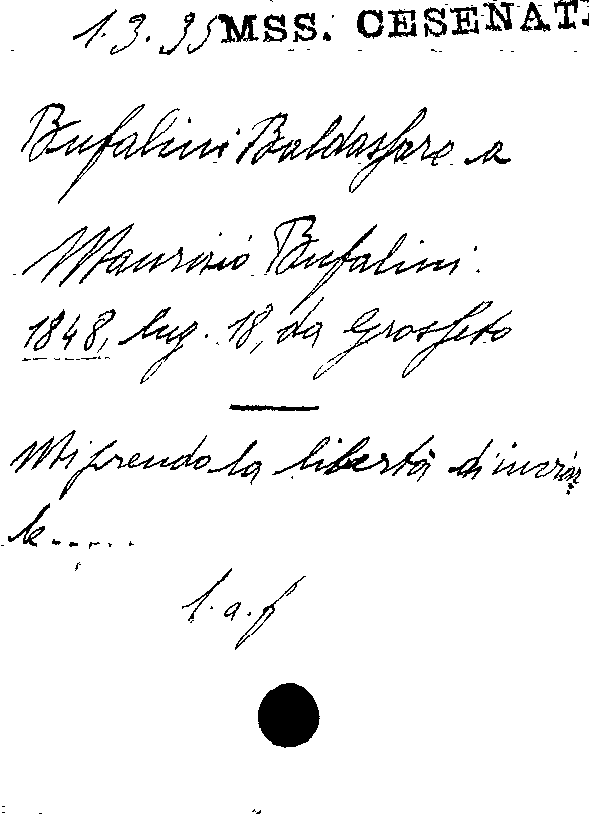 1.3.35 MSS. CESENATI
Bufalini Baldassare a
Maurizio Bufalini.
1848, lug. 18, da Grosseto
Mi prendo la libertà di inviar
le.....
l.a.f